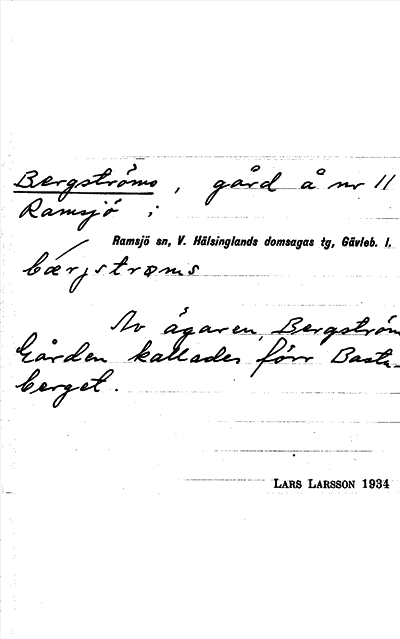 Bergströms, gård å nr 11
Ramsjö ;
Ramsjö sn, V. Hälsinglands domsagas tg, Gävleb. l.
bærjstrøms
Av ägaren, Bergström
Gården kallades förr Bastu-
berget.
LARS LARSSON 1934